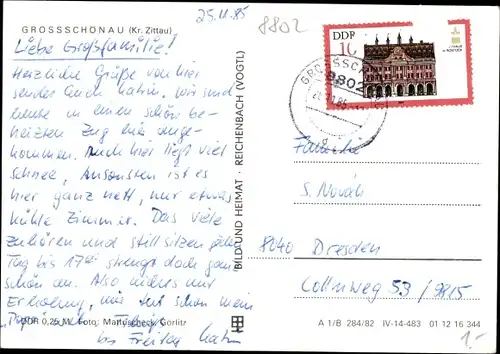 25.11.85
8802
GROSSSCHÖNAU (Kr. Zittau)
Liebe Großfamilie!
Herzliche Grüße von hier
sendet Euch Katrin. Wir sind
heute in einem schön be-
heizten Zug hier ange-
kommen. Auch hier liegt viel
Schnee, Ansonsten ist es
hier ganz nett, nur etwas
kühle Zimmer. Das viele
Zuhören und still sitzen jeden
Tag bis 17 strengt doch ganz
schön an. Also anders nur
Erholung, mir tut schon mein
"Popo" weh.
bis Freitag Katrin
DDR 0,25 M Foto: Martuscheck, Görlitz
BILD UND HEIMAT · REICHENBACH (VOGTL)
DDR
10
GROSSSCHÖNAU
8802
Familie
S. Novák
8040 Dresden
Collmweg 53 / 9815
A 1/B 284/82 IV-14-483 01 12 16 344
1.-